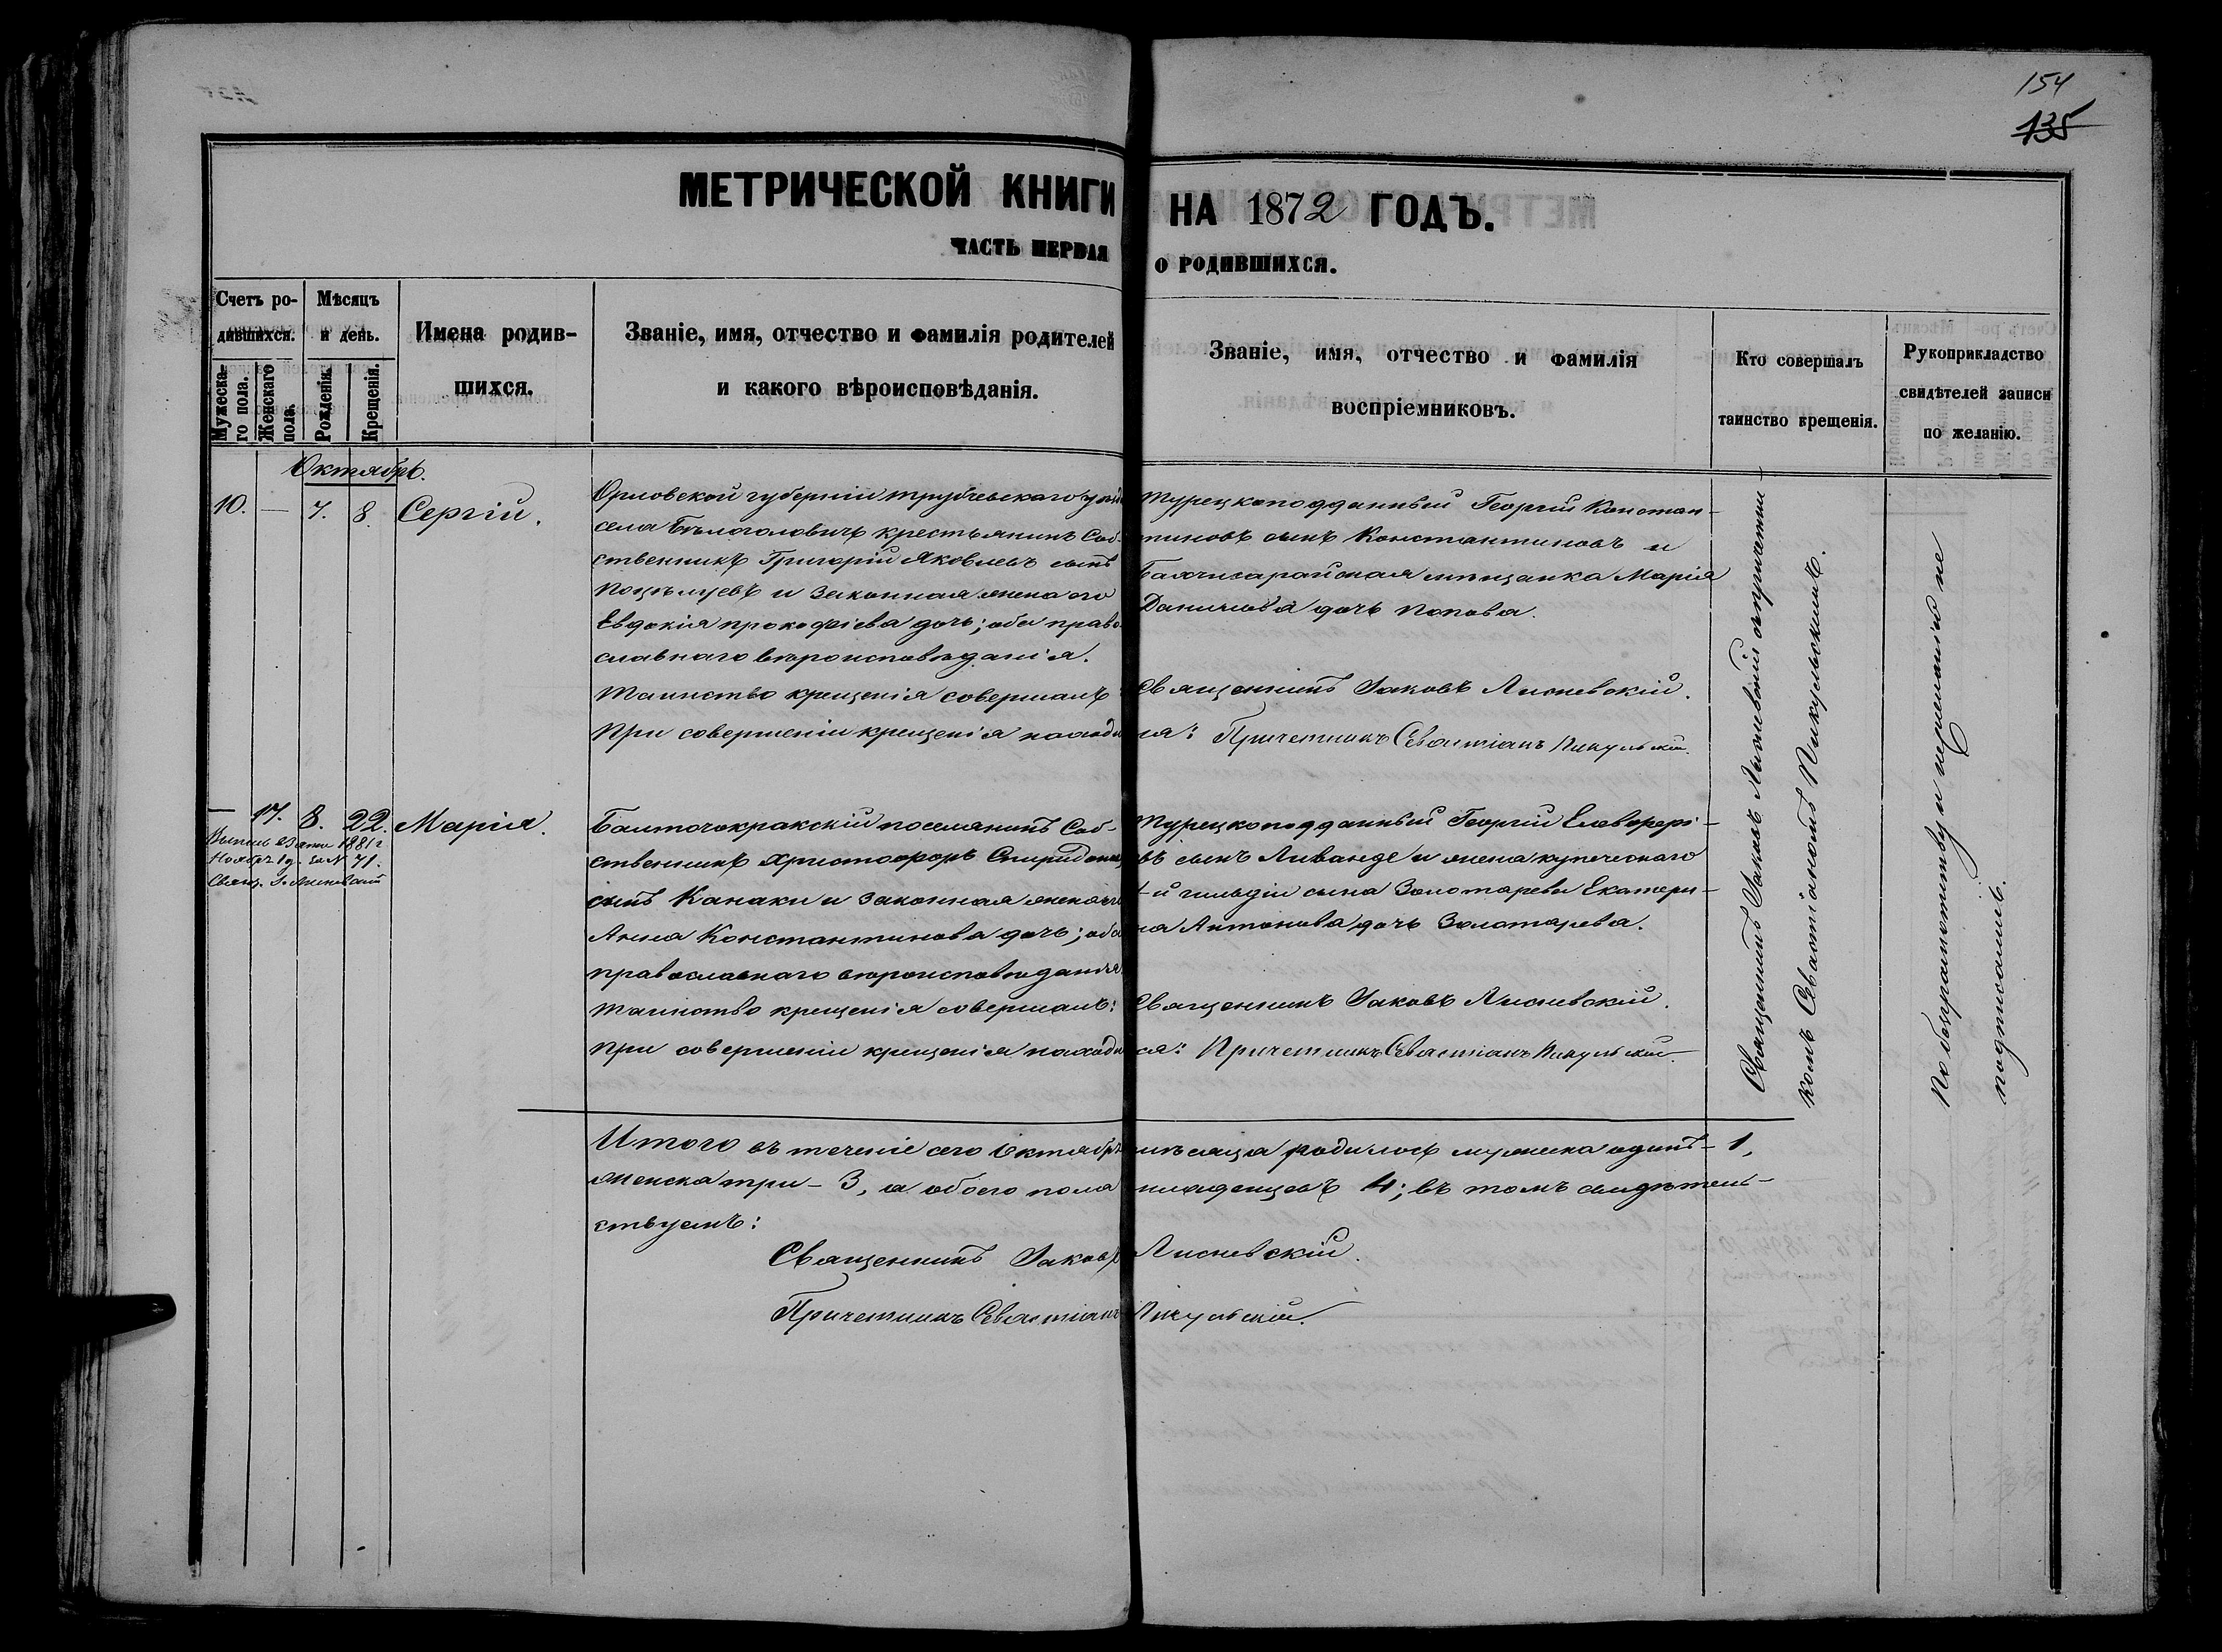 154
135
МЕТРИЧЕСКОЙ КНИГИ НА 1872 ГОДЪ.
ЧАСТЬ ПЕРВАЯ О РОДИВШИХСЯ.
Счетъ ро-
дившихся.
Мужеска-
го пола.
Женскаго
пола.
Мѣсяцъ
и день.
Рожденія.
Крещенія.
Имена родив-
шихся.
Званіе, имя, отчество и фамилія родителей
и какого вѣроисповѣданія.
Званіе, имя, отчество и фамилія
воспріемниковъ.
Кто совершалъ
таинство крещенія.
Рукоприкладство
свидѣтелей записи
по желанію.
Октябрь.
10. — 7. 8. Сергій.
Орловской губерніи Трубчевскаго уѣзда
села Бѣлоголовичъ крестьянинъ Соб-
ственникъ Григорій Яковлевъ сынъ
Поцѣлуевъ и законная жена его
Евдокія Прокофіева дочь; оба право-
славнаго вѣроисповѣданія.
Турецкоподданный Георгій Констан-
тиновъ сынъ Константиновъ и
Бахчисарайская мѣщанка Марія
Данилова дочь Попова.
Таинство крещенія совершалъ: Священникъ Іаковъ Лисневскій.
При совершеніи крещенія находился: Причетникъ Севастіанъ Пикульскій.
— 17. 8. 22. Марія.
1881 г
Ноября 19 За № 71.
Свящ. І. Лисневскій
поселянинъ Соб-
ственникъ Христофоръ Спиридоновъ
сынъ Канаки и законная жена его
Анна Константинова дочь; оба
православнаго вѣроисповѣданія.
Турецкоподданный Георгій Елевфері-
евъ сынъ Ливанде и жена купеческаго
1-й гильдіи сына Золотарева Екатери-
на Антонова дочь Золотарева.
Таинство крещенія совершалъ: Священникъ Іаковъ Лисневскій.
При совершеніи крещенія находился: Причетникъ Севастіанъ Пикульскій.
Священникъ Іаковъ Лисневскій съ причетни-
комъ Севастіаномъ Пикульскимъ.
По безграмотству и нежеланію не
подписались.
Итого въ теченіе сего Октября мѣсяца родилось мужеска одинъ – 1,
женска три – 3, а обоего пола младенцевъ 4; въ томъ свидѣтель-
ствуемъ:
Священникъ Іаковъ Лисневскій.
Причетникъ Севастіанъ Пикульскій.